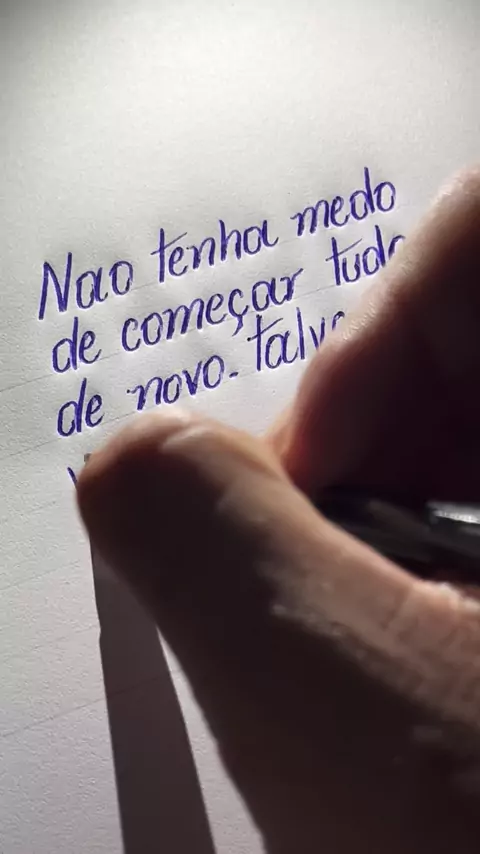 Nao tenha medo
de começar tudo
de novo. talv